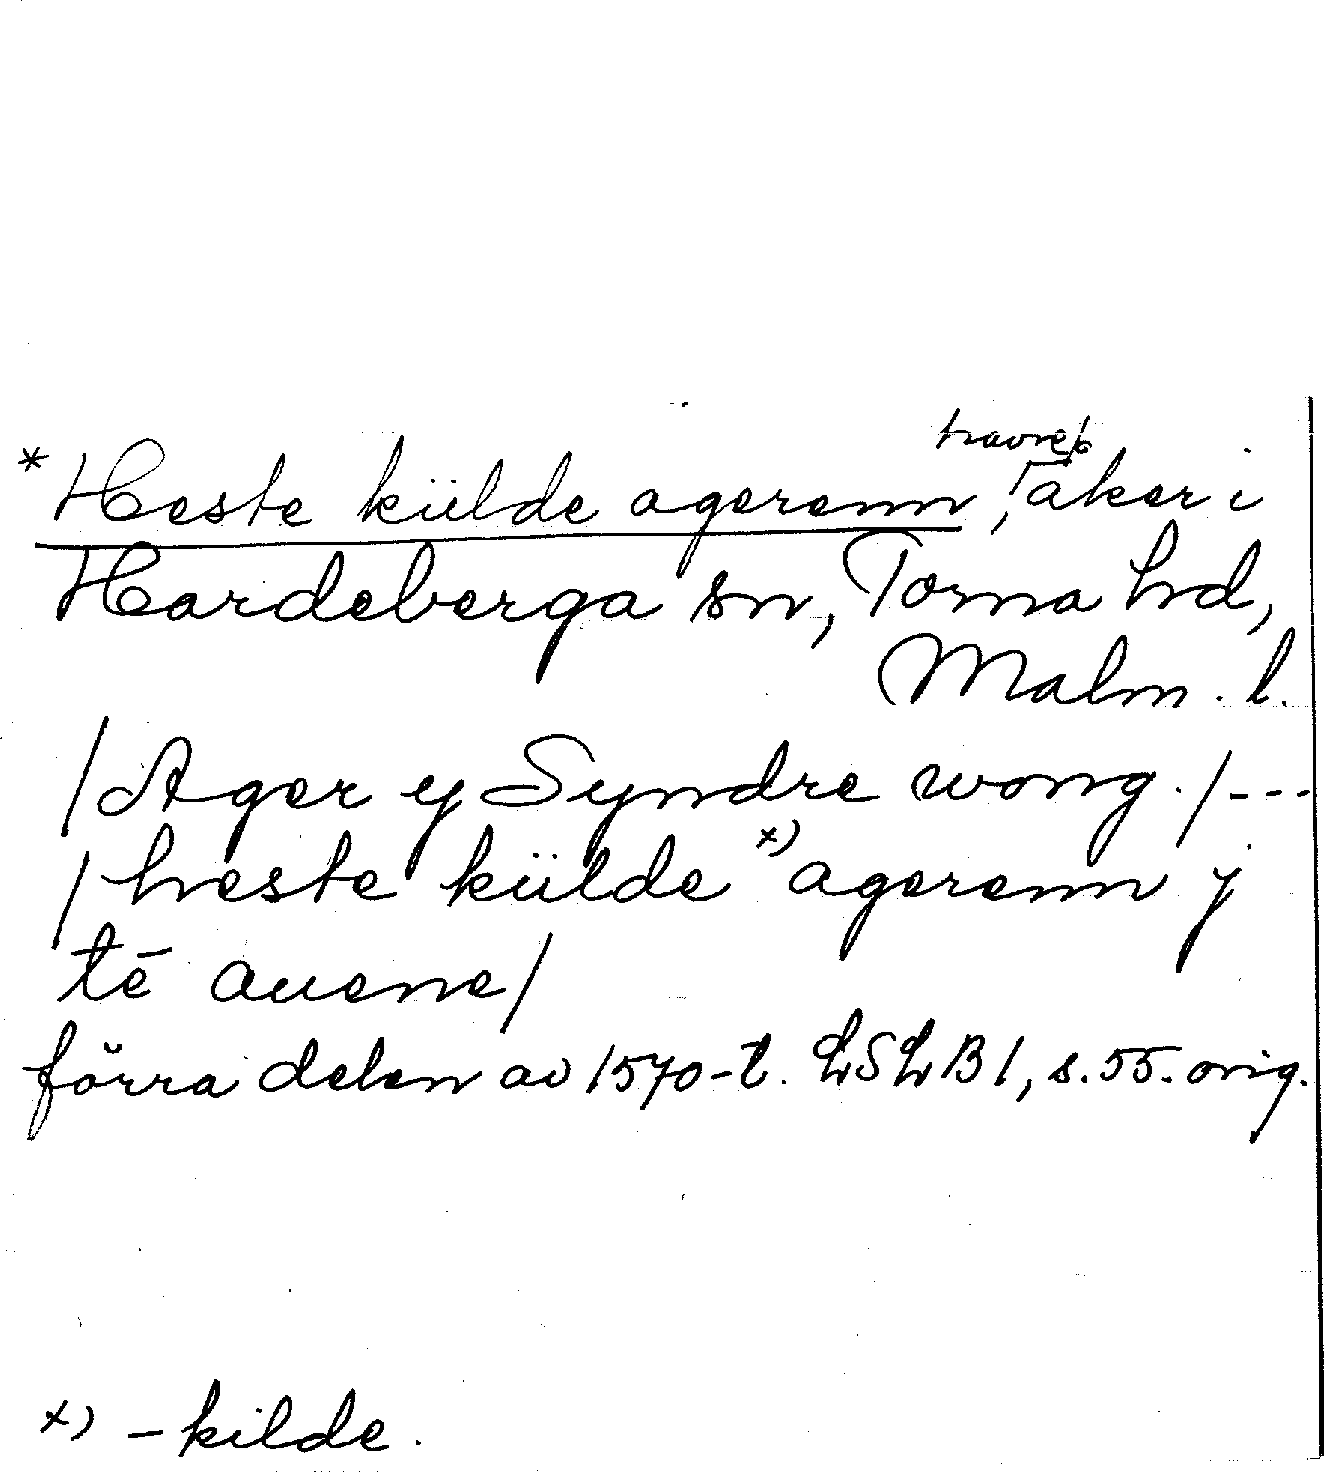 * Heste külde agerenn, havre åker i
Hardeberga sn, Torna hd,
Malm. l.
/Ager y Syndre wong./---
/heste külde x) agerenn y
tē auene/
förra delen av 1570-t. LSLB 1, s. 55. orig.
x) -kilde.